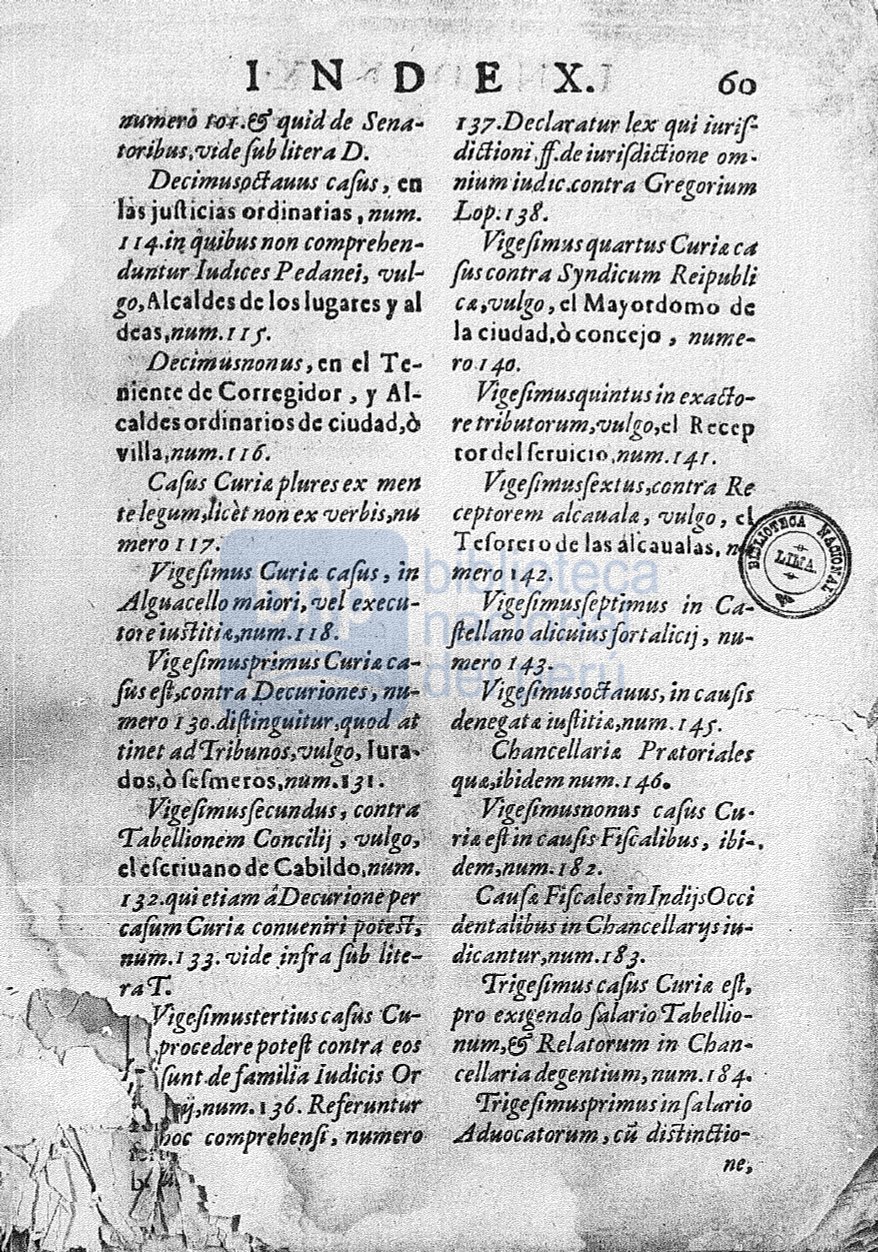 INDEX. 60
numero 101.& quid de Sena-
toribus,vide sub litera D.
Decimusoctauus casus, en
las justicias ordinarias, num.
114.in quibus non comprehen-
duntur Iudices Pedanei, vul-
go, Alcaldes de los lugares y al
deas,num.115.
Decimusnonus, en el Te-
niente de Corregidor, y Al-
caldes ordinarios de ciudad,ò
villa,num.116.
Casus Curiæ plures ex men
te legum,licèt non ex verbis,nu
mero 117.
Vigesimus Curiæ casus, in
Alguacello maiori, vel execu-
tore iustitiæ,num.118.
Vigesimusprimus Curiæ ca-
sus est,contra Decuriones, nu-
mero 130.distinguitur,quod at
tinet ad Tribunos,vulgo, Iura-
dos,ò sesmeros,num.131.
Vigesimussecundus, contra
Tabellionem Concilij, vulgo,
el escriuano de Cabildo,num.
132.qui etiam à Decurione per
casum Curiæ conueniri potest,
num.133. vide infra sub lite-
ra T.
Vigesimustertius casus Cu-
procedere potest contra eos
sunt de familia Iudicis Or
ij,num.136. Referuntur
hoc comprehensi, numero
137.Declaratur lex qui iuris-
dictioni, ff.de iurisdictione om-
nium iudic.contra Gregorium
Lop.138.
Vigesimus quartus Curiæ ca
sus contra Syndicum Reipubli
cæ,vulgo, el Mayordomo de
la ciudad,ò concejo, nume-
ro 140.
Vigesimusquintus in exacto-
re tributorum,vulgo,el Recep
tor del seruicio,num.141.
Vigesimussextus,contra Re
ceptorem alcaualæ, vulgo, el
Tesorero de las alcaualas, nu-
mero 142.
Vigesimusseptimus in Ca-
stellano alicuius fortalicij, nu-
mero 143.
Vigesimusoctauus, in causis
denegatæ iustitiæ,num.145.
Chancellariæ Prætoriales
quæ,ibidem num.146.
Vigesimusnonus casus Cu-
riæ est in causis Fiscalibus, ibi-
dem,num.182.
Causæ Fiscales in Indijs Occi
dentalibus in Chancellarijs iu-
dicantur,num.183.
Trigesimus casus Curiæ est,
pro exigendo salario Tabellio-
num,& Relatorum in Chan-
cellaria degentium, num.184.
Trigesimusprimus in salario
Aduocatorum, cũ distinctio-
ne,
BIBLIOTECA NACIONAL
LIMA.
bnp biblioteca
nacional
del perú